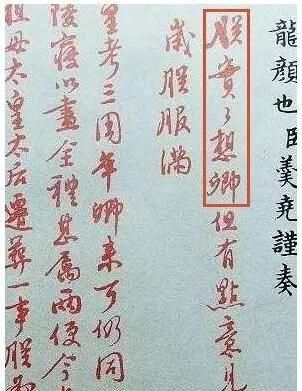 龍顏也臣羹堯謹奏
朕實々想卿但有點意見
歲朕服滿
皇考三周年卿來可仍同
陵寢以盡全禮甚屬兩便今
但母太皇太后遷葬一事朕